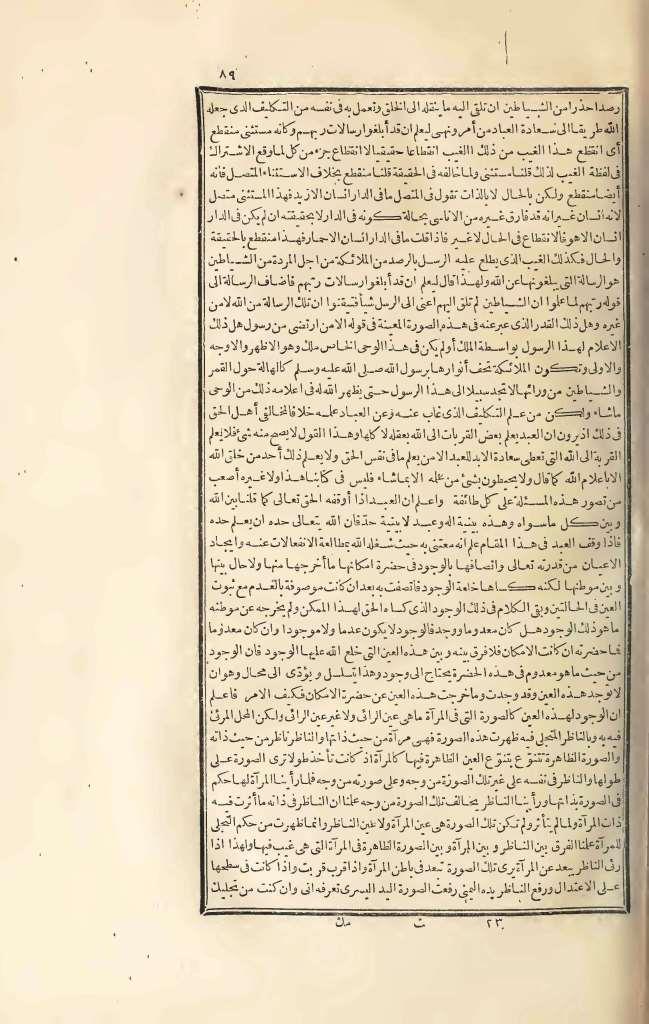 ٨٩
رصدا حذرا من الشياطين ان تلقى اليه ما ينقله الى الخلق وتعمل به فى نفسه من التكليف الذى جعله
الله طريقا الى سعادة العباد من أمر ونهى ليعلم ان قد أبلغوا رسالات ربهم وكانه مستثنى منقطع
أى انقطع هذا الغيب من ذلك الغيب انقطاعا حقيقيا لا انقطاع جزء من كل لما وقع الاشتراك
فى لفظة الغيب لذلك قلنا مستثنى ولما خالفه فى الحقيقة قلنا منقطع بخلاف الاستثناء المتصل فانه
أيضا منقطع ولكن بالحال لا بالذات تقول فى المتصل ما فى الدار انسان الا زيد فهذا المستثنى متصل
لانه انسان غير انه قد فارق غيره من الاناسى بحالة كونه فى الدار لا بحقيقته ان لم يكن فى الدار
انسان الا هو فالانقطاع فى الحال لا غير فاذا قلت ما فى الدار انسان الا حمار فهذا منقطع بالحقيقة
والحال فكذلك الغيب الذى يطلع عليه الرسل بالرصد من الملائكة من اجل المردة من الشياطين
هو الرسالة التى يبلغونها عن الله ولهذا قال ليعلم ان قد أبلغوا رسالات ربهم فاضاف الرسالة الى
قوله ربهم لما علموا ان الشياطين لم تلق اليهم أعنى الى الرسل شيأ فتيقنوا ان تلك الرسالة من الله لا من
غيره وهل ذلك القدر الذى عبر عنه فى هذه الصورة المعينة فى قوله الا من ارتضى من رسول هل ذلك
الاعلام لهذا الرسول بواسطة الملك أو لم يكن فى هذا الوحى الخاص ملك وهو الاظهر والاوجه
والاولى وتكون الملائكة تحف أنوارها برسول الله صلى الله عليه وسلم كالهالة حول القمر
والشياطين من ورائها لا تجد سبيلا الى هذا الرسول حتى يظهر الله له فى اعلامه ذلك من الوحى
ماشاء ولكن من علم التكليف الذى غاب عنه وعن العباد علمه خلافا لمخالفى أهل الحق
فى ذلك اذ يرون ان العبد يعلم بعض القربات الى الله بعقله لا كلها وهذا القول لا يصح منه شئ فلا يعلم
القربة الى الله التى تعطى سعادة الابد للعبد الا من يعلم ما فى نفس الحق ولا يعلم ذلك أحد من خلق الله
الا باعلام الله كما قال ولا يحيطون بشئ من علمه الا بما شاء فليس فى كتابنا هذا ولا غيره أصعب
من تصور هذه المسئلة على كل طائفة واعلم ان العبد اذا أوقفه الحق تعالى كما قلنا بين الله
وبين كل ماسواه وهذه بينية اله وعبد لا بينية حدّ فان الله يتعالى حده ان يعلم حده
فاذا وقف العبد فى هذا المقام علم انه معتنى به حيث شغله الله بمطالعة الانفعالات عنه وايجاد
الاعيان من قدرته تعالى واتصافها بالوجود فى حضرة امكانها ما أخرجها منها ولا حال بينها
وبين موطنها لكنه كساها خلعة الوجود فاتصفت به بعد ان كانت موصوفة بالعدم مع ثبوت
العين فى الحالتين وبقى الكلام فى ذلك الوجود الذى كساه الحق لهذا الممكن ولم يخرجه عن موطنه
ما هو ذلك الوجود هل كان معدوما ووجد فالوجود لا يكون عدما ولا موجودا وان كان معدوما
فما حضرته ان كانت الامكان فلا فرق بينه وبين هذه العين التى خلع الله عليها الوجود فان الوجود
من حيث ما هو معدوم فى هذه الحضرة يحتاج الى وجود وهذا يتسلسل ويؤدى الى محال وهو ان
لا توجد هذه العين وقد وجدت وما خرجت هذه العين عن حضرة الامكان فكيف الامر فاعلم
ان الوجود لهذه العين كالصورة التى فى المرآة ما هى عين الرائى ولا غير عين الرائى ولكن المحل المرئى
فيه به وبالناظر المتجلى فيه ظهرت هذه الصورة فهى مرآة من حيث ذاتها والناظر ناظر من حيث ذاته
والصورة الظاهرة تتنوّع بتنوّع العين الظاهرة فيها كالمرآة اذ كانت تأخذ طولا ترى الصورة على
طولها والناظر فى نفسه على غير تلك الصورة من وجه وعلى صورته من وجه فلما رأينا المرآة لها حكم
فى الصورة بذاتها ورأينا الناظر يخالف تلك الصورة من وجه علمنا ان الناظر فى ذاته ما أثرت فيه
ذات المرآة ولما لم يتأثر ولم تكن تلك الصورة هى عين المرآة ولا عين الناظر وانما ظهرت من حكم التجلى
للمرآة علمنا الفرق بين الناظر وبين المرآة وبين الصورة الظاهرة فى المرآة التى هى غيب فيها ولهذا اذا
رؤى الناظر يبعد عن المرآة يرى تلك الصورة تبعد فى باطن المرآة واذا قرب قربت واذا كانت فى سطحها
على الاعتدال ورفع الناظر يده اليمنى رفعت الصورة اليد اليسرى تعرفه انى وان كنت من تجليك
٢٣ ت مك